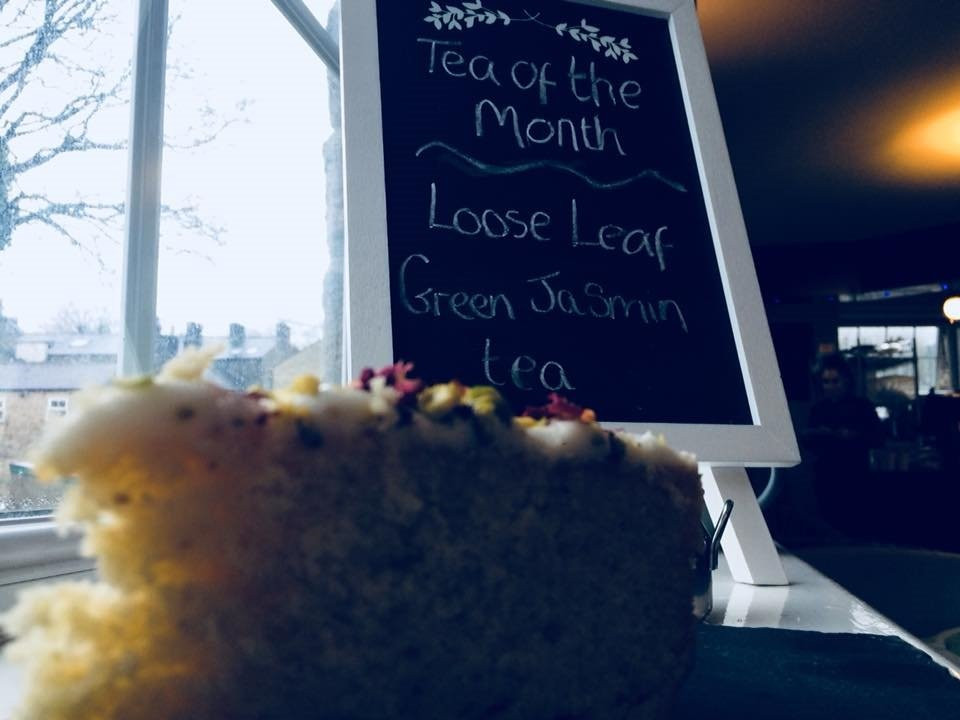 Tea of the
Month
Loose Leaf
Green Jasmin
tea